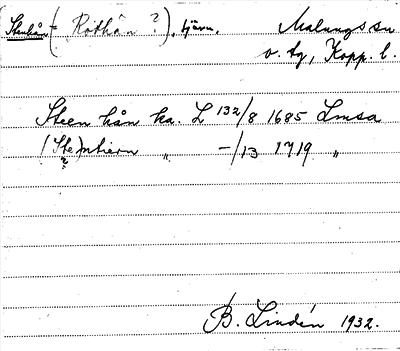 Stenhån (= Rothån?), tjärn. Malungs sn
v. tg, Kopp. l.
Steen hån ka. L 132/8 1685 Lmsa
(Ste)ntiern " -/13 1719 "
?
B. Lindén 1932.